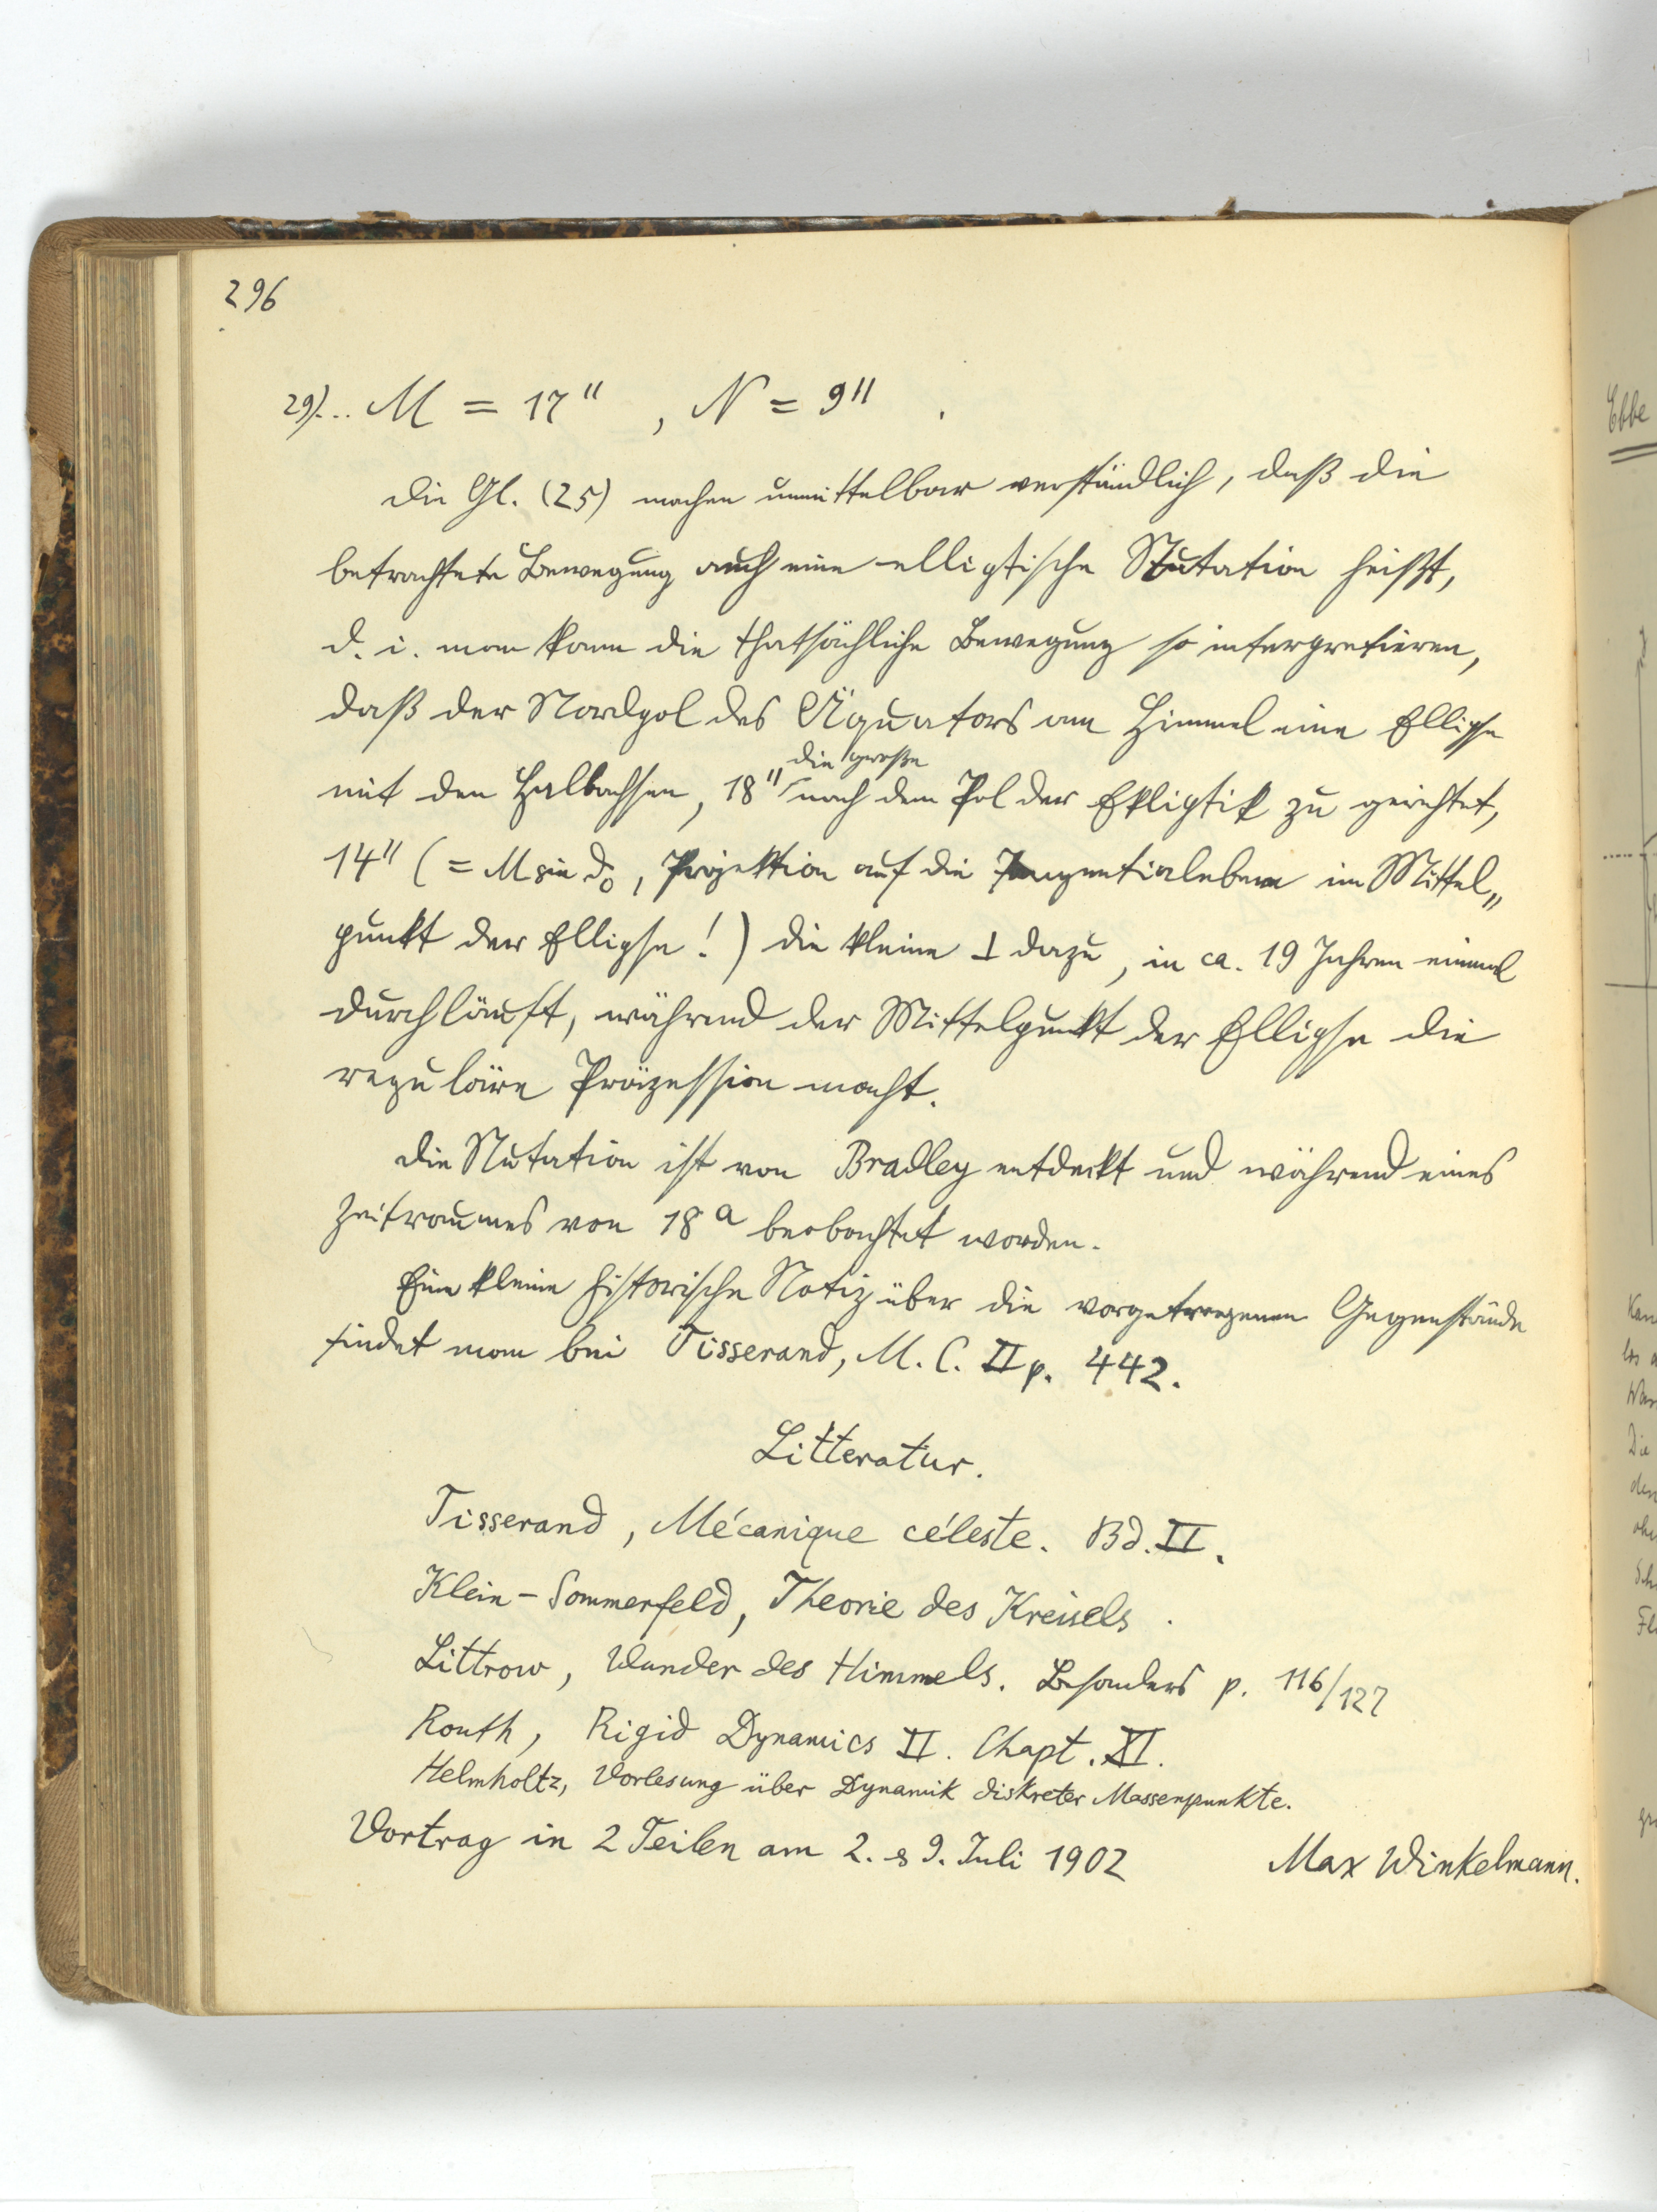 296
29)... M = 17" , N = 9" .
Die Gl. (25) machen unmittelbar verständlich, daß die
betrachtete Bewegung auch eine elliptische Nutation heißt,
d. i. man kann die thatsächliche Bewegung so interpretieren,
daß der Nordpol des Äquators am Himmel eine Ellipse
die große
mit den Halbachsen, 18" nach dem Pol der Ekliptik zu gerichtet,
14" (= M sin ϑ₀, Projektion auf die Tangentialebene im Mittel„
punkt der Ellipse!) die kleine ⊥ dazu, in ca. 19 Jahren einmal
durchläuft, während der Mittelpunkt der Ellipse die
reguläre Präzession macht.
Die Nutation ist von Bradley entdeckt und während eines
Zeitraumes von 18 a beobachtet worden.
Eine kleine historische Notiz über die vorgetragenen Gegenstände
findet man bei Tisserand, M. C. II p. 442.
Litteratur.
Tisserand, Mécanique céleste. Bd. II.
Klein-Sommerfeld, Theorie des Kreisels.
Littrow, Wunder des Himmels. Besonders p. 116/127
Routh, Rigid Dynamics II. Chapt. XI.
Helmholtz, Vorlesung über Dynamik diskreter Massenpunkte.
Vortrag in 2 Teilen am 2. & 9. Juli 1902 Max Winkelmann.
Ebbe